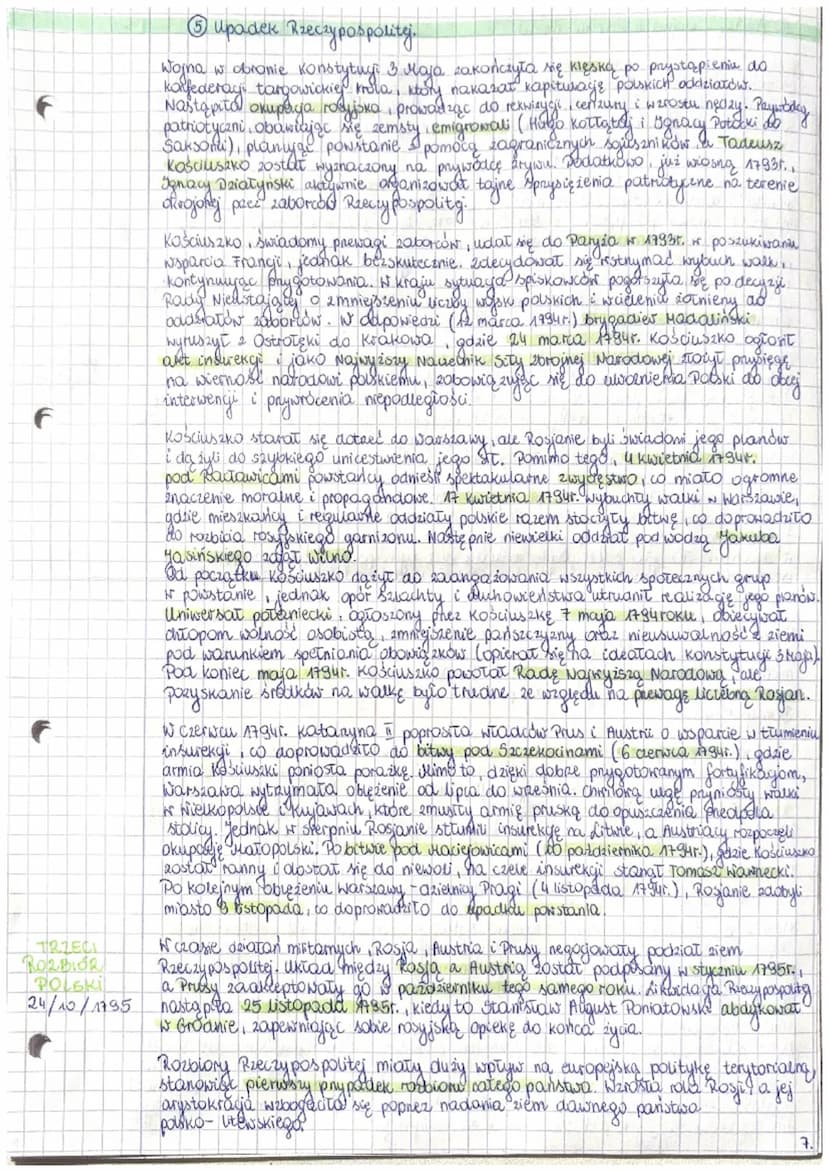 ⑤ Upadek Rzeczypospolitej.
Wojna w obronie Konstytucji 3 Maja zakończyła się klęską po przystąpieniu do
konfederacji targowickiej króla, który nakazał kapitulację polskich oddziałów.
Nastąpiła okupacja rosyjska, prowadząc do rekwizycji, cenzury i wzrostu nędzy. Przywódcy
patriotyczni, obawiając się zemsty, emigrowali (Hugo Kołłątaj i Ignacy Potocki do
Saksonii), planując powstanie z pomocą zagranicznych sojuszników, a Tadeusz
Kościuszko został wyznaczony na przywódcę zrywu. Dodatkowo, już wiosną 1793r.,
Ignacy Działyński aktywnie organizował tajne sprzysiężenia patriotyczne na terenie
okrojonej przez zaborców Rzeczypospolitej.
Kościuszko, świadomy przewagi zaborców, udał się do Paryża w 1793r. w poszukiwaniu
wsparcia Francji, jednak bezskutecznie. Zdecydował się wstrzymać wybuch walk,
kontynuując przygotowania. W kraju sytuacja spiskowców pogorszyła się po decyzji
Rady Nieustającej o zmniejszeniu liczby wojsk polskich i wcieleniu żołnierzy do
oddziałów zaborców. W odpowiedzi (12 marca 1794r.) brygadier Madaliński
wyruszył z Ostrołęki do Krakowa, gdzie 24 marca 1794r. Kościuszko ogłosił
akt insurekcji i jako Najwyższy Naczelnik Siły Zbrojnej Narodowej złożył przysięgę
na wierność narodowi polskiemu, zobowiązując się do uwolnienia Polski do obcej
interwencji i przywrócenia niepodległości.
Kościuszko starał się dotrzeć do Warszawy, ale Rosjanie byli świadomi jego planów
i dążyli do szybkiego unicestwienia jego sił. Pomimo tego, 4 kwietnia 1794r.
pod Racławicami powstańcy odnieśli spektakularne zwycięstwo, co miało ogromne
znaczenie moralne i propagandowe. 17 kwietnia 1794r. wybuchły walki w Warszawie,
gdzie mieszkańcy i regularne oddziały polskie razem stoczyły bitwę, co doprowadziło
do rozbicia rosyjskiego garnizonu. Następnie niewielki oddział pod wodzą Jakuba
Jasińskiego zajął Wilno.
Od początku Kościuszko dążył do zaangażowania wszystkich społecznych grup
w powstanie, jednak opór szlachty i duchowieństwa utrudnił realizację jego planów.
Uniwersał połaniecki, ogłoszony przez Kościuszkę 7 maja 1794 roku, obiecywał
chłopom wolność osobistą, zmniejszenie pańszczyzny oraz nieusuwalność z ziemi
pod warunkiem spełniania obowiązków (opierał się na ideałach Konstytucji 3 Maja).
Pod koniec maja 1794r. Kościuszko powołał Radę Najwyższą Narodową, ale
pozyskanie środków na walkę było trudne ze względu na przewagę liczebną Rosjan.
W czerwcu 1794r. Katarzyna II poprosiła władców Prus i Austrii o wsparcie w tłumieniu
insurekcji, co doprowadziło do bitwy pod Szczekocinami (6 czerwca 1794r.), gdzie
armia Kościuszki poniosła porażkę. Mimo to, dzięki dobrze przygotowanym fortyfikacjom,
Warszawa wytrzymała oblężenie od lipca do września. Chwilową ulgę przyniosły walki
w Wielkopolsce i Kujawach, które zmusiły armię pruską do opuszczenia przedpola
stolicy. Jednak w sierpniu Rosjanie stłumili insurekcję na Litwie, a Austriacy rozpoczęli
okupację Małopolski. Po bitwie pod Maciejowicami (10 października 1794r.), gdzie Kościuszko
został ranny i dostał się do niewoli, na czele insurekcji stanął Tomasz Wawrzecki.
Po kolejnym oblężeniu Warszawy - dzielnicy Pragi (4 listopada 1794r.), Rosjanie zdobyli
miasto 8 listopada, co doprowadziło do upadku powstania.
TRZECI
ROZBIÓR
POLSKI
24/10/1795
W czasie działań militarnych, Rosja, Austria i Prusy negocjowały podział ziem
Rzeczypospolitej. Układ między Rosją a Austrią został podpisany w styczniu 1795r.,
a Prusy zaakceptowały go w październiku tego samego roku. Likwidacja Rzeczypospolitej
nastąpiła 25 listopada 1795r., kiedy to Stanisław August Poniatowski abdykował
w Grodnie, zapewniając sobie rosyjską opiekę do końca życia.
Rozbiory Rzeczypospolitej miały duży wpływ na europejską politykę terytorialną,
stanowiąc pierwszy przypadek rozbioru całego państwa. Wzrosła rola Rosji, a jej
arystokracja wzbogaciła się poprzez nadania ziem dawnego państwa
polsko-litewskiego.
7.